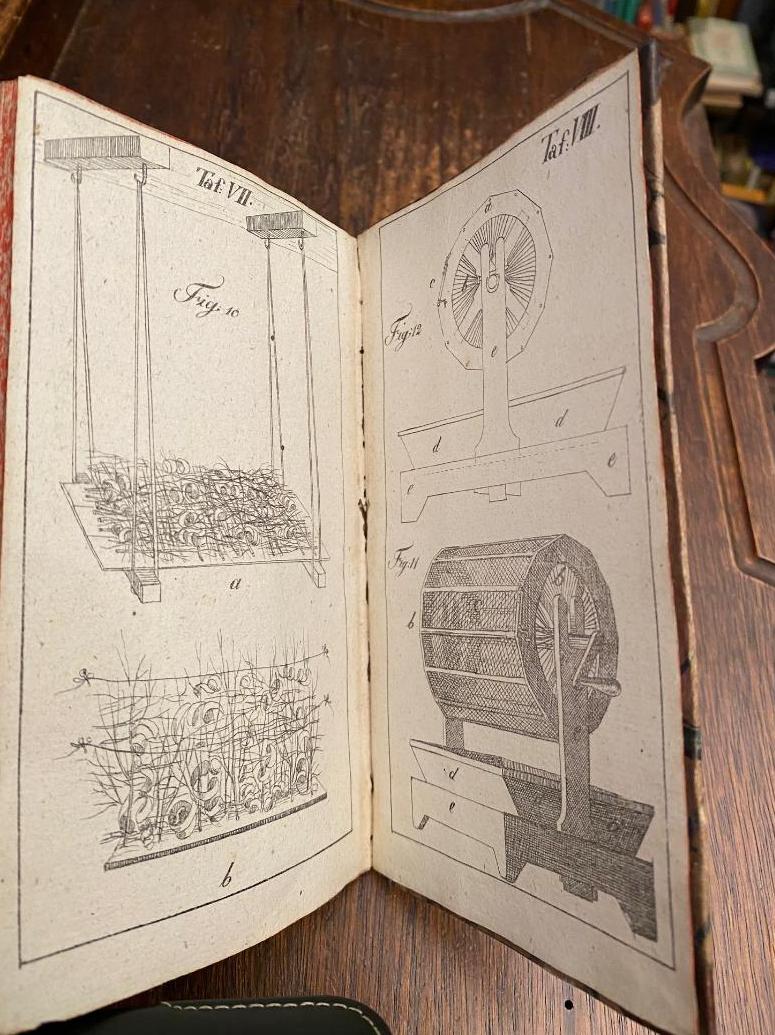 Taf: VII.
Fig: 10
a
b
Taf: VIII.
d
c
Fig: 12
e
d
d
e
e
Fig: 11
b
c
d
e